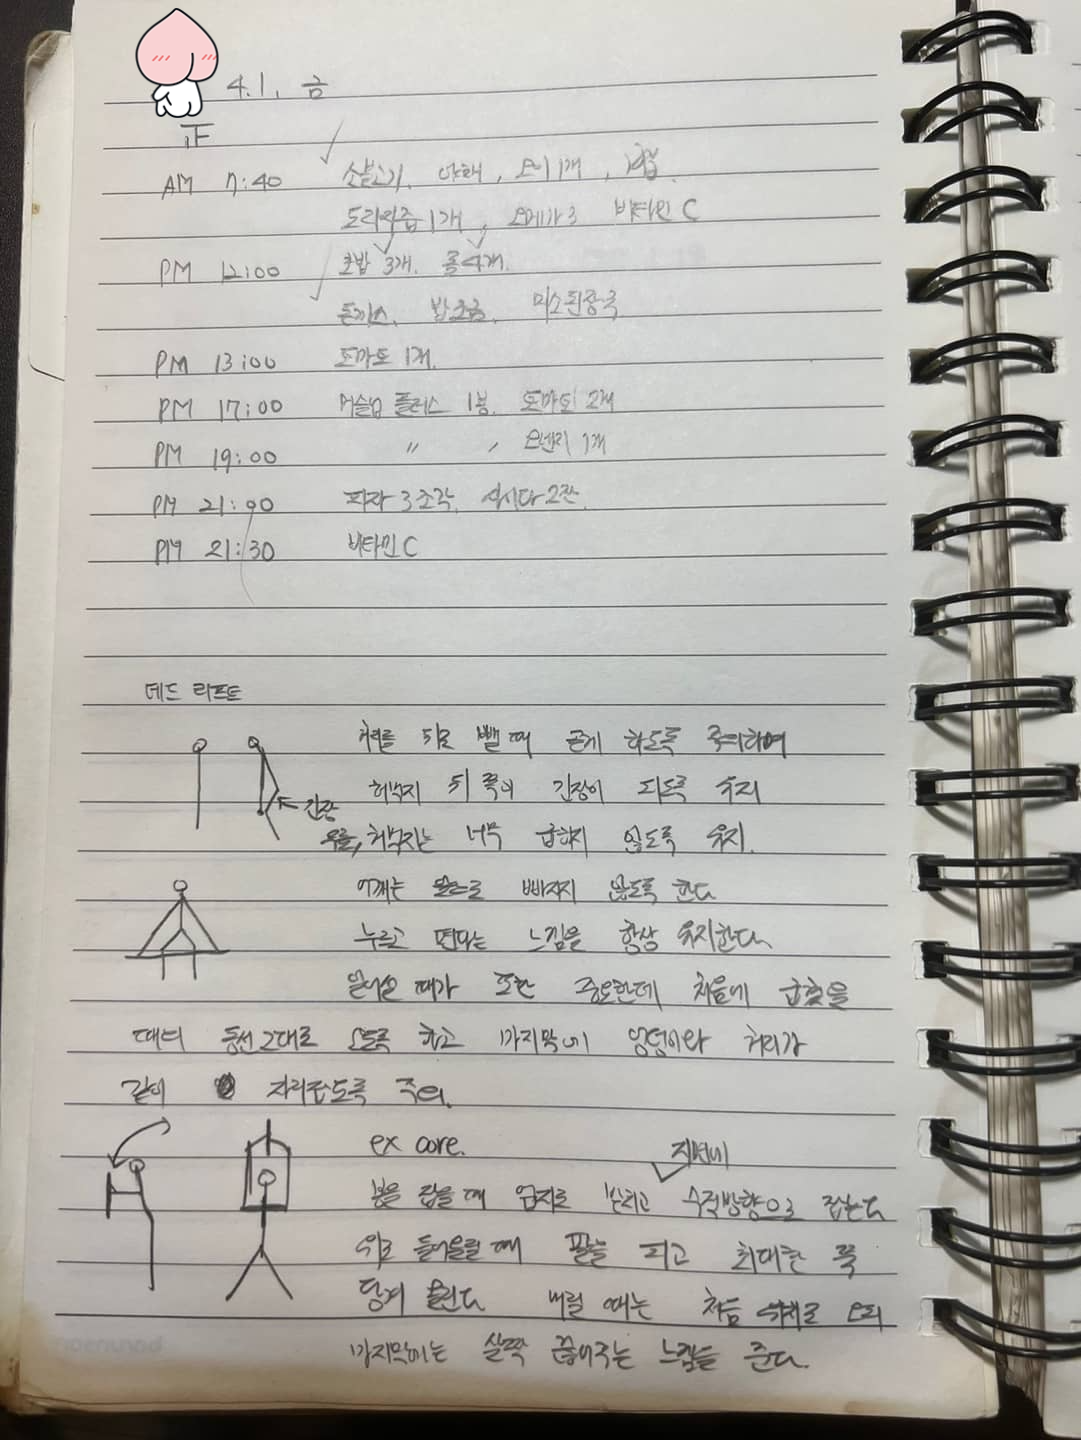 4.1. 금
正
AM 7:40 소불고기, 야채, 오이 1개,
도라지즙 1개, 오메가3 비타민 C
PM 12:00 초밥 3개. 롤 4개.
돈까스, 밥 조금, 미소된장국
PM 13:00 토마토 1개.
PM 17:00 머슬업 플러스 1봉. 토마토 2개
PM 19:00 〃 , 오렌지 1개
PM 21:00 피자 3조각. 2잔.
PM 21:30 비타민 C
데드 리프트
허리를 뒤로 뺄 때 곧게 하도록 주의하여
허벅지 뒤 쪽이 긴장이 되도록 유지
긴장
무릎, 허벅지는 너무 굽히지 않도록 유지.
어깨는 앞으로 빠지지 않도록 한다
누르고 편다는 느낌을 항상 유지한다.
일어설 때가 또한 중요한데 처음에 굽혔을
때의 동선 그대로 오도록 하고 마지막에 엉덩이와 허리가
같이 자리잡도록 주의.
ex core.
지면에
봉을 잡을 때 엄지로 받치고 수직방향으로 잡는다
위로 들어올릴 때 팔을 피고 최대한 쭉
당겨 올린다 내릴 때는 처음 자세로 오되
마지막에는 살짝 끊어주는 느낌을 준다.